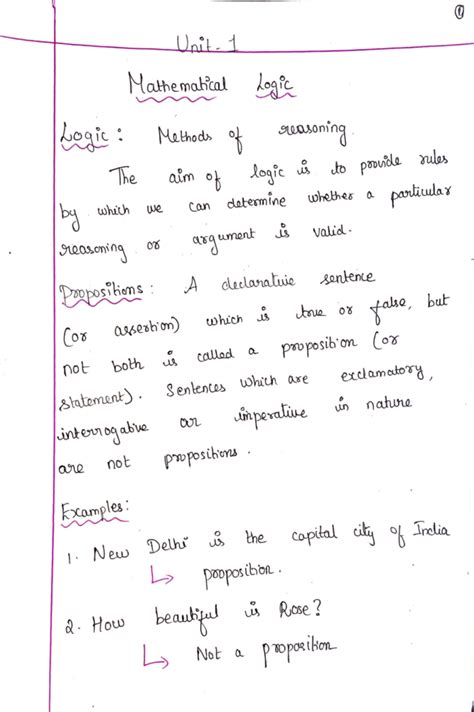 ①
Unit - 1
Mathematical Logic
Logic : Methods of reasoning
The aim of logic is to provide rules
by which we can determine whether a particular
reasoning or argument is valid.
Propositions : A declarative sentence
(or assertion) which is true or false, but
not both is called a proposition (or
statement). Sentences which are exclamatory,
interrogative or imperative in nature
are not propositions.
Examples:
1. New Delhi is the capital city of India
↳ proposition.
2. How beautiful is Rose?
↳ Not a proposition